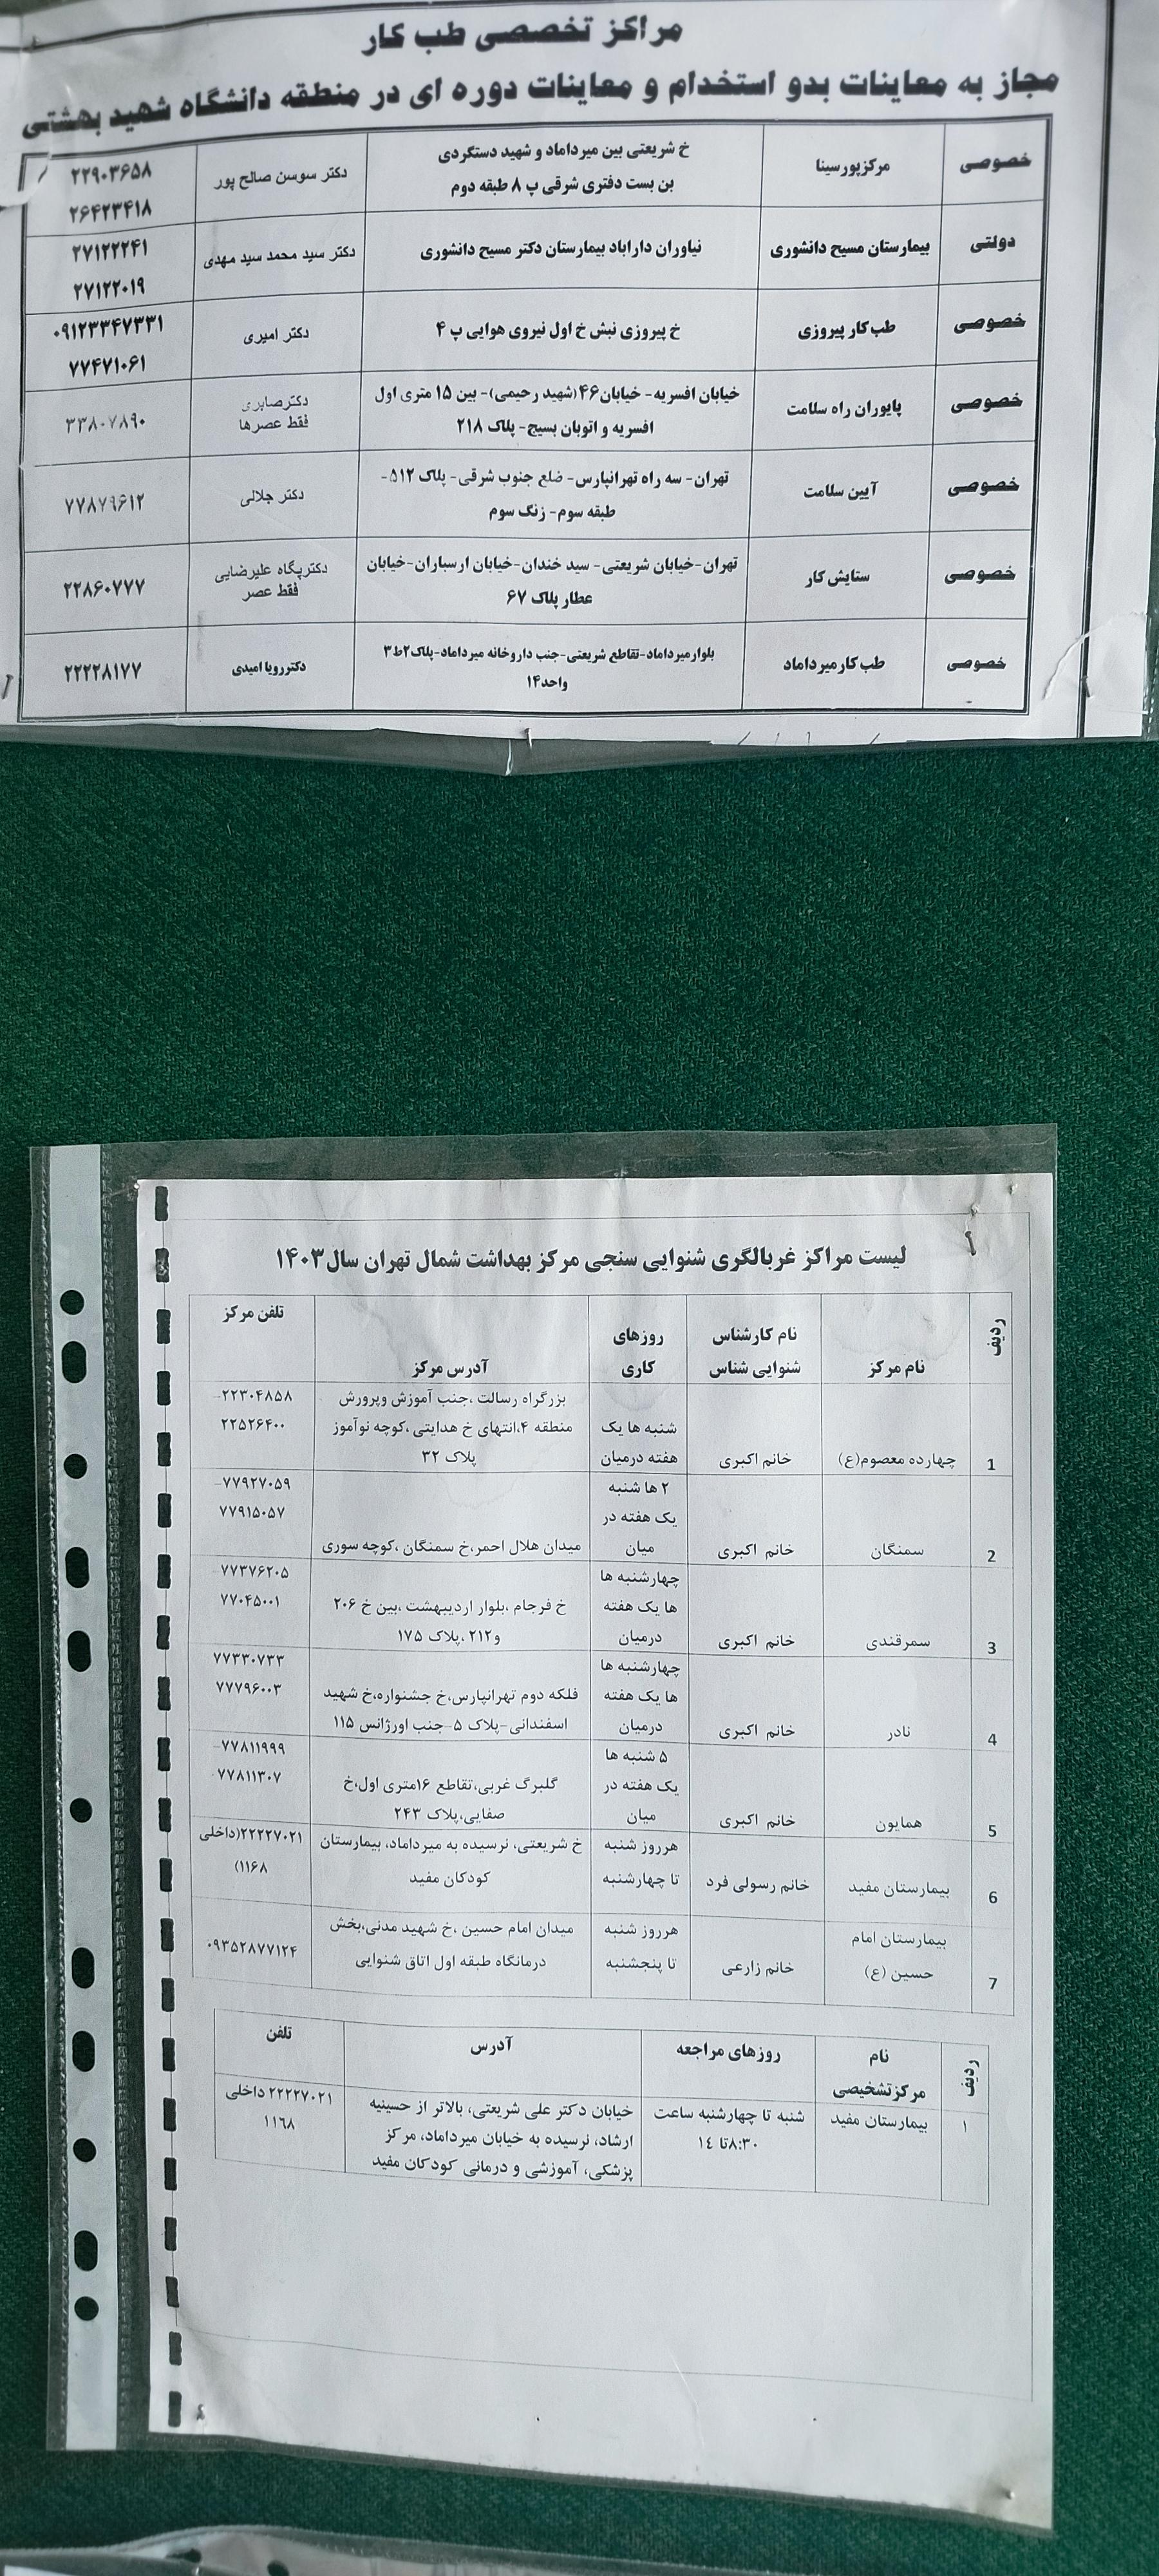 مراکز تخصصی طب کار
مجاز به معاینات بدو استخدام و معاینات دوره ای در منطقه دانشگاه شهید بهشتی
خصوصی
مرکزپورسینا
خ شریعتی بین میرداماد و شهید دستگردی
بن بست دفتری شرقی پ ۸ طبقه دوم
دکتر سوسن صالح پور
۲۲۹۰۳۶۵۸
۲۶۴۲۳۴۱۸
دولتی
بیمارستان مسیح دانشوری
نیاوران داراباد بیمارستان دکتر مسیح دانشوری
دکتر سید محمد سید مهدی
۲۷۱۲۲۲۴۱
۲۷۱۲۲۰۱۹
خصوصی
طب کار پیروزی
خ پیروزی نبش خ اول نیروی هوایی پ ۴
دکتر امیری
۰۹۱۲۳۳۴۷۳۳۱
۷۷۴۷۱۰۶۱
خصوصی
پایوران راه سلامت
خیابان افسریه- خیابان۴۶(شهید رحیمی)- بین ۱۵ متری اول
افسریه و اتوبان بسیج- پلاک ۲۱۸
دکترصابری
فقط عصرها
۳۳۸۰۷۸۹۰
خصوصی
آیین سلامت
تهران- سه راه تهرانپارس- ضلع جنوب شرقی- پلاک ۵۱۲-
طبقه سوم- زنگ سوم
دکتر جلالی
۷۷۸۷۹۶۱۲
خصوصی
ستایش کار
تهران-خیابان شریعتی- سید خندان-خیابان ارسباران-خیابان
عطار پلاک ۶۷
دکترپگاه علیرضایی
فقط عصر
۲۲۸۶۰۷۷۷
خصوصی
طب کارمیرداماد
بلوارمیرداماد-تقاطع شریعتی-جنب داروخانه میرداماد-پلاک۲ط۳
واحد۱۴
دکتررویا امیدی
۲۲۲۲۸۱۷۷
لیست مراکز غربالگری شنوایی سنجی مرکز بهداشت شمال تهران سال۱۴۰۳
ردیف
نام مرکز
نام کارشناس
شنوایی شناس
روزهای
کاری
آدرس مرکز
تلفن مرکز
1
چهارده معصوم(ع)
خانم اکبری
شنبه ها یک
هفته درمیان
بزرگراه رسالت ،جنب آموزش وپرورش
منطقه ۴،انتهای خ هدایتی ،کوچه نوآموز
پلاک ۳۲
۲۲۳۰۴۸۵۸-
۲۲۵۲۶۴۰۰
2
سمنگان
خانم اکبری
۲ ها شنبه
یک هفته در
میان
میدان هلال احمر،خ سمنگان ،کوچه سوری
۷۷۹۲۷۰۵۹-
۷۷۹۱۵۰۵۷
3
سمرقندی
خانم اکبری
چهارشنبه ها
ها یک هفته
درمیان
خ فرجام ،بلوار اردیبهشت ،بین خ ۲۰۶
و۲۱۲ ،پلاک ۱۷۵
۷۷۳۷۶۲۰۵
۷۷۰۴۵۰۰۱
4
نادر
خانم اکبری
چهارشنبه ها
ها یک هفته
درمیان
فلکه دوم تهرانپارس،خ جشنواره،خ شهید
اسفندانی-پلاک ۵-جنب اورژانس ۱۱۵
۷۷۳۳۰۷۳۳
۷۷۷۹۶۰۰۳
5
همایون
خانم اکبری
۵ شنبه ها
یک هفته در
میان
گلبرگ غربی،تقاطع ۱۶متری اول،خ
صفایی،پلاک ۲۴۳
۷۷۸۱۱۹۹۹-
۷۷۸۱۱۳۰۷
6
بیمارستان مفید
خانم رسولی فرد
هرروز شنبه
تا چهارشنبه
خ شریعتی، نرسیده به میرداماد، بیمارستان
کودکان مفید
۲۲۲۲۷۰۲۱(داخلی
۱۱۶۸)
7
بیمارستان امام
حسین (ع)
خانم زارعی
هرروز شنبه
تا پنجشنبه
میدان امام حسین ،خ شهید مدنی،بخش
درمانگاه طبقه اول اتاق شنوایی
۰۹۳۵۲۸۷۷۱۲۴
ردیف
نام
مرکزتشخیصی
روزهای مراجعه
آدرس
تلفن
۱
بیمارستان مفید
شنبه تا چهارشنبه ساعت
۸:۳۰تا ١٤
خیابان دکتر علی شریعتی، بالاتر از حسینیه
ارشاد، نرسیده به خیابان میرداماد، مرکز
پزشکی، آموزشی و درمانی کودکان مفید
۲۲۲۲۷۰۲۱ داخلی
١١٦٨